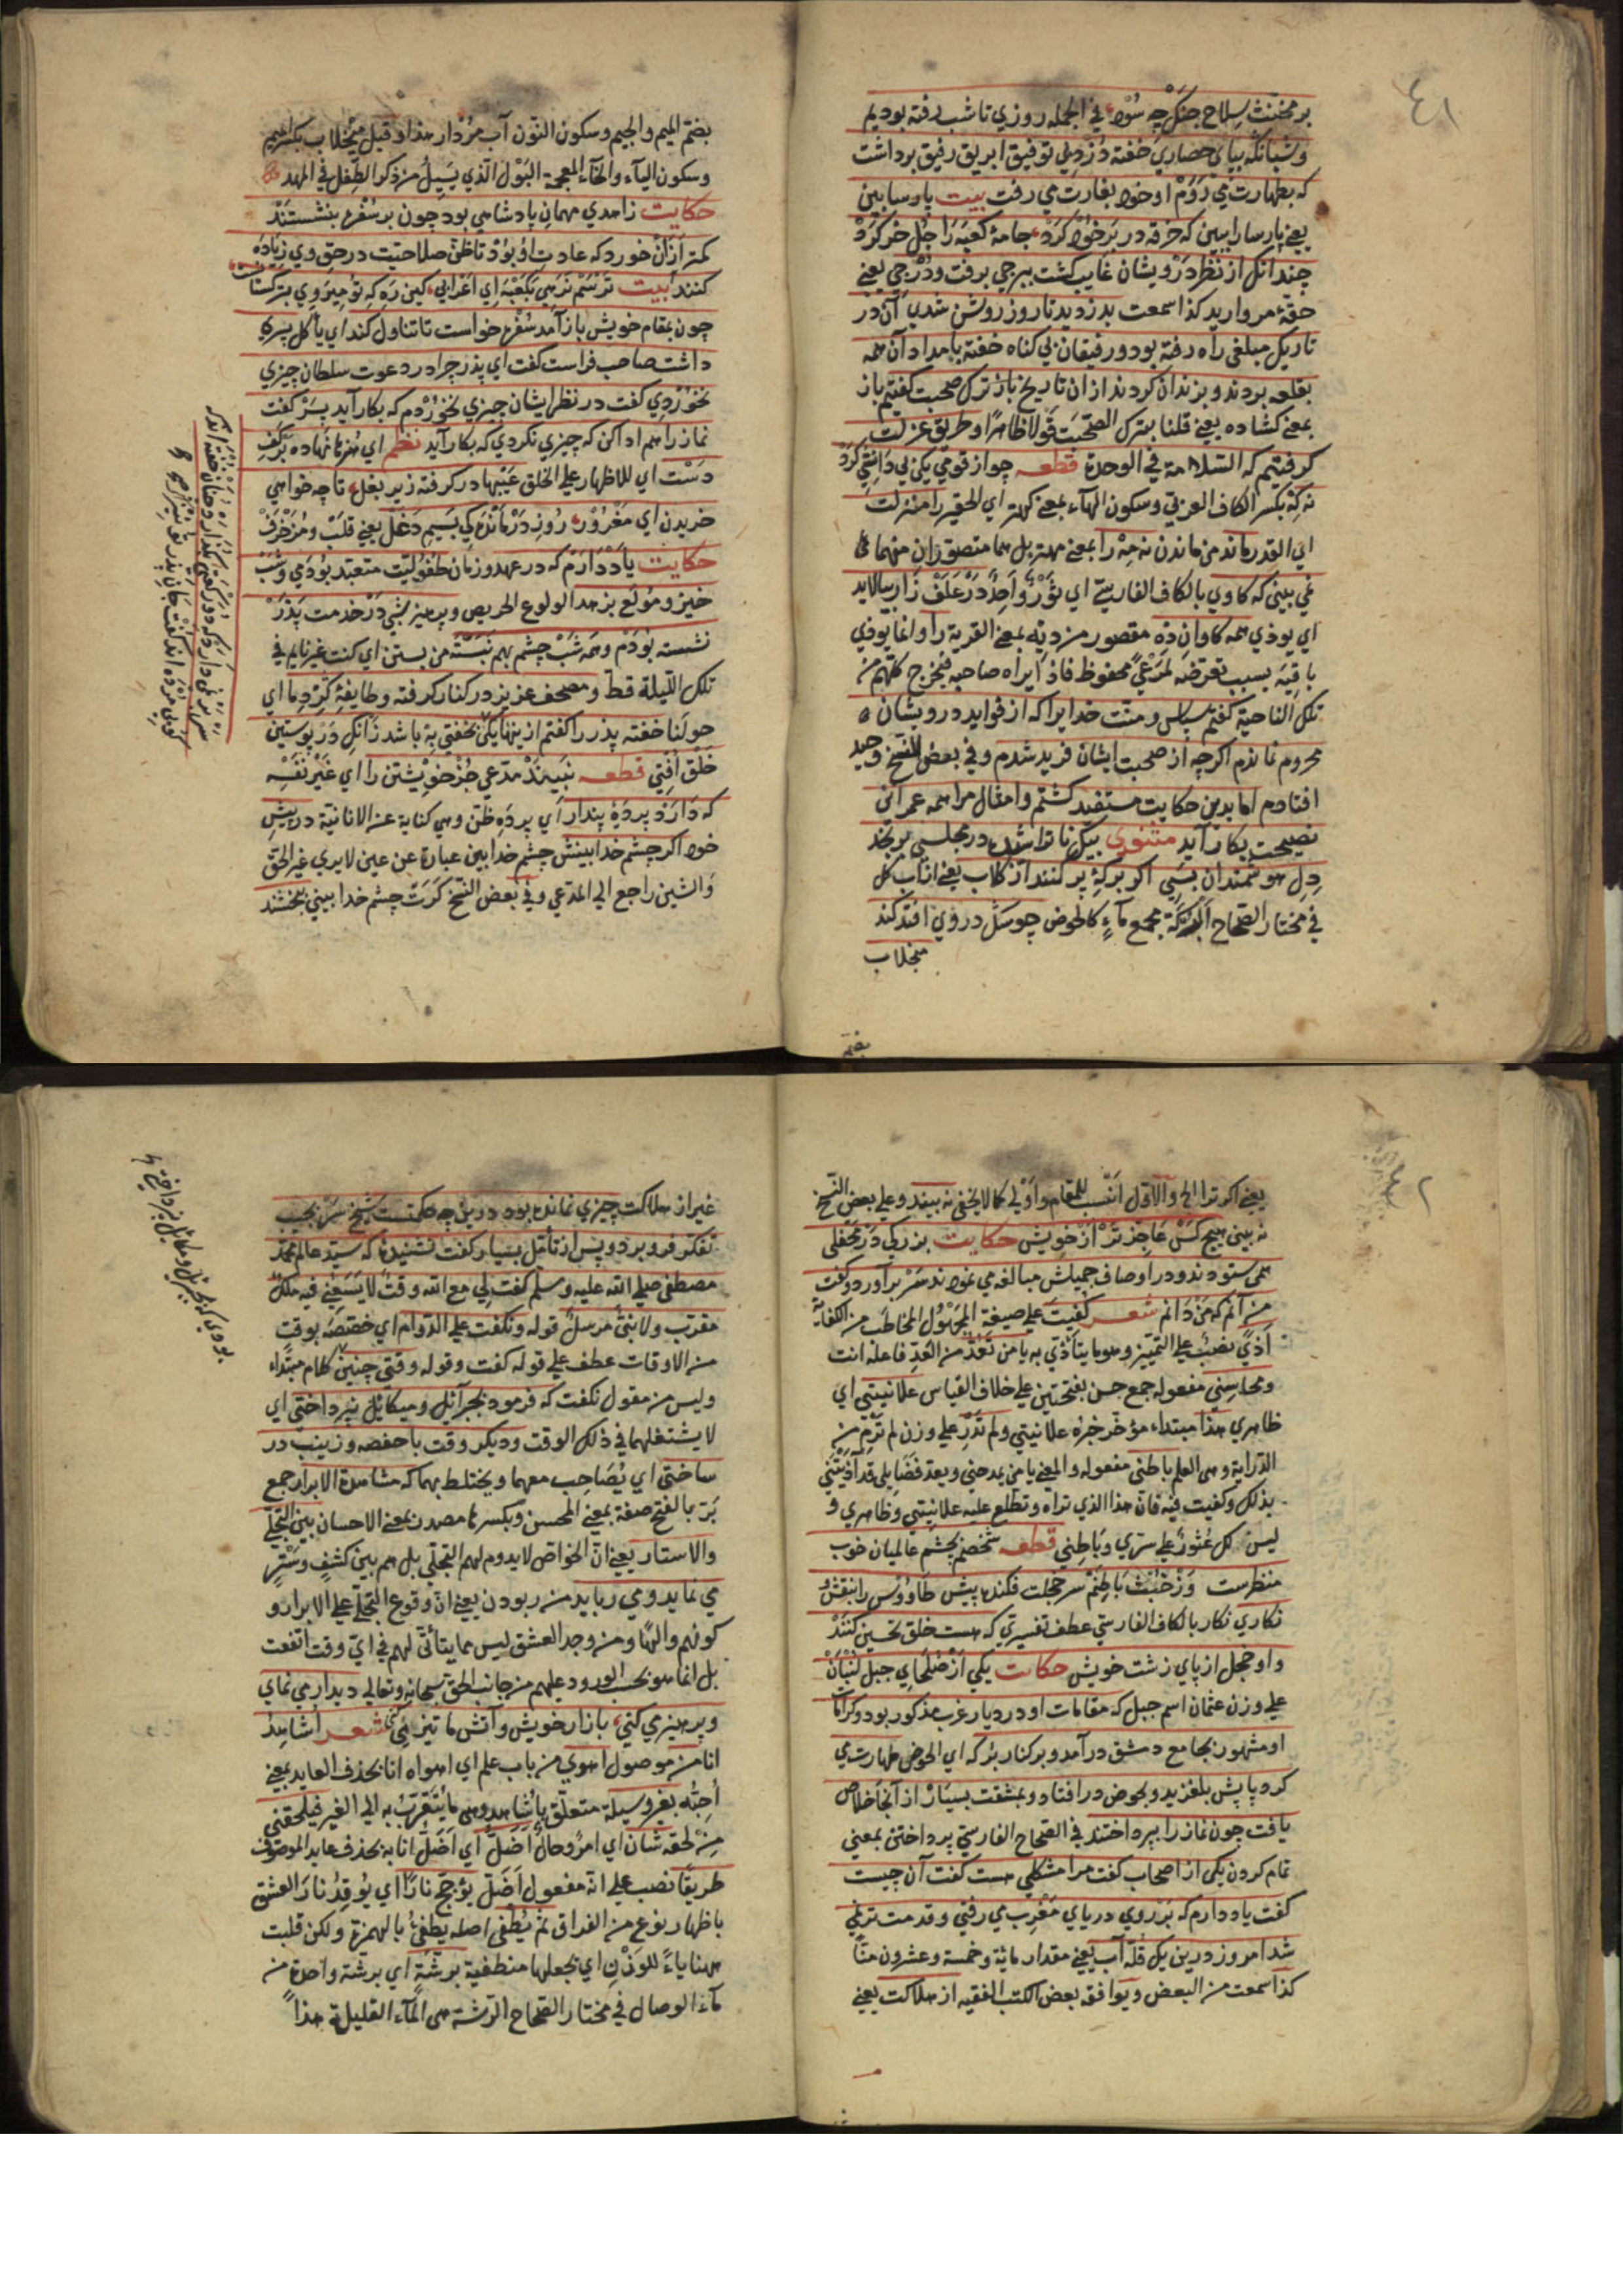 ٤١
بر مخنث سلاح جنك چه سود في الجمله روزي تا شب رفته بوديم
وشبانكه بپاى حصارى خفته دزد بي توفيق ابريق رفيق برداشت
كه بطهارت مي رَوَم او خود بغارت مي رفت بيت پارسا بين
يعنى پارسا را ببين كه خرقه در بر خود كرد جامهٔ كعبه را جل خر كرد
چندانكه از نظر درويشان غايب كشت ببرجي برفت ودرجي يعنى
حقهٔ مرواريد كذا سمعت بدزديد تا روز روشن شدي آن در
تاريك مبلغى راه رفته بود ورفيقان بي كناه خفته بامداد آن همه
بقلعه بردند وبزندان كردند از ان تاريخ باز ترك صحبت كفتيم باز
بمعنى كشاده يعنى قلنا بترك الصحبة قولا ظاهرا وطريق عزلت
كرفتيم كه السلامة في الوحدة قطعه چو از قومي يكى بي دانشي كرد
نه كه بكسر الكاف العربي وسكون الهآء بمعنى كهتر اي الحقير را منزلت
اي القدر ماند من ماندن نه مه را بمعنى مهتر بل هما متصوران منهما
نمي بيني كه كاوي بالكاف الفارسية اي ثور واحد در علف زار بيالايد
اي يوذي همه كاوان ده مقصور من ديه بمعنى القرية را وانما يوذي
باقيه بسبب تعرضه لمرعى محفوظ فاذا يراه صاحبه فيخرج كلهم من
تلك الناحية كفتم سپاس ومنت خدايرا كه از فوايد درويشان
محروم نماندم اكرچه از صحبت ايشان فريد شدم وفي بعض النسخ وحيد
افتادم اما بدين حكايت مستفيد كشتم وامثال مرا همه عمر اين
نصيحت بكار آيد مثنوى بيك نا تراشيده در مجلسي برنجد
دل هوشمندان بسي اكر بركهٔ پر كنند از كلاب يعنى از آب كل
في مختار الصحاح البركة مجمع مآء كالحوض چو سك در وي افتد كند
منجلاب
بضم الميم والجيم وسكون النون آب مردار هذا وقيل ميخلاب بكسر الميم
وسكون اليآء والخآء المعجمة البول الذي يسيل من ذكر الطفل في المهد
حكايت زاهدي مهمان پادشاهي بود چون بر سفره بنشستند
كمتر از ان خورد كه عادت او بود تا ظن صلاحيت در حق وي زياده
كنند بيت ترسم نرسي بكعبه اي اعرابي كين ره كه تو ميروي بتركستانست
چون بمقام خويش باز آمد سفره خواست تا تناول كند اي يأكل پسري
داشت صاحب فراست كفت اي پدر چرا در دعوت سلطان چيزي
نخوردي كفت در نظر ايشان چيزي نخوردم كه بكار آيد پسر كفت
نماز را هم ادا كن كه چيزي نكردي كه بكار آيد نظم اي هنرها نهاده بر كف
دست اي للاظهار على الخلق عيبها در كرفته زير بغل تا چه خواهي
خريدن اي مغرور روز درماندكي بسيم دغل يعنى قلب ومزخرف
حكايت ياد دارم كه در عهد وزمان طفوليت متعبد بودمي وشب
خيز ومولع بزهد الولوع الحريص وپرهيز شبي در خدمت پدر
نشسته بودم وهمه شب چشم بهم نبسته من بستن اي كنت غير نايم في
تلك الليلة قط ومصحف عزيز در كنار كرفته وطايفهٔ كرد ما اي
حولنا خفته پدر را كفتم از ينها يكى نخفتي به باشد زانك در پوستين
خلق افتي قطعه نبيند مدعي جز خويشتن را اي غير نفسه
كه دارد پردهٔ پندار اي پرده ظن وهي كناية عن الانانية در پيش
خود اكر چشم خدا بينش چشم خدا بين عبارة عن عين لا يرى غير الحق
والشين راجع الى المدعي وفي بعض النسخ كرت چشم خدا بيني ببخشند
٤٢
يعنى اكر ترا الخ والاول انسب للمقام واولى كما لا يخفى نه بيند وعلى بعض النسخ
نه بينى هيچ كس عاجز تر از خويش حكايت بزركي در محفلي
همى ستودند ودر اوصاف جميلش مبالغه مي نمودند سر برآورد وكفت
من آنم كه من دانم شعر كفيت على صيغة المجهول المخاطب من الكفاية
اذى نصب على التمييز وهو ما يتأذى به يا من تعد من العد فاعله انت
ومحاسني مفعوله جمع حسن بفتحتين على خلاف القياس علانيتي اي
ظاهري هذا مبتداء مؤخر خبره علانيتي ولم تدر على وزن لم ترم من
الدراية وهي العلم باطني مفعوله والمعنى يا من يمدحني ويعد فضايلي قد آذيتني
بذلك وكفيت فيه فان هذا الذي تراه وتطلع عليه علانيتي وظاهري و
ليس كل عثور على سري وباطني قطعه شخصم بچشم عالميان خوب
منظرست وز خبث باطنم سر خجلت فكنده پيش طاووس را بنقش
نكاري نكار بالكاف الفارسي عطف تفسيري كه هست خلق تحسين كنند
واو خجل از پاي زشت خويش حكايت يكى از صلحاي جبل لبنان
على وزن عثمان اسم جبل كه مقامات او در ديار عرب مذكور بود وكرامات
او مشهور بجامع دمشق در آمد وبر كنار بركه اي الحوض طهارت مي
كرد پايش بلغزيد وبحوض در افتاد وبمشقت بسيار از آنجا خلاص
يافت چون نماز را بپرداختند في الصحاح الفارسي پرداختن بمعنى
تمام كردن يكى از اصحاب كفت مرا مشكلي هست كفت آن چيست
كفت ياد دارم كه بر روي درياي مغرب مي رفتي وقدمت تر نمي
شد امروز درين يك قله آب يعنى مقدار مائة وخمسة وعشرون منا
كذا سمعت من البعض ويوافقه بعض الكتب الفقيه از هلاكت يعنى
غير از هلاكت چيزي نمانده بود درين چه حكمتست شيخ سر بجيب
تفكر فرو برد وپس از تأمل بسيار كفت نشنيدهٔ كه سيد عالم محمد
مصطفى صلى الله عليه وسلم كفت لي مع الله وقت لا يسعني فيه ملك
مقرب ولا نبي مرسل قوله ونكفت على الدوام اي خصصه بوقت
من الاوقات عطف على قوله كفت وقوله وقتى چنين كلام مبتداء
وليس من مقول نكفت كه فرمود بجبرآئيل وميكائيل نپرداختى اي
لا يشتغلهما في ذلك الوقت وديكر وقت با حفصه وزينب در
ساختى اي يصاحب معهما ويختلط بهما كه مشاهدة الابرار جمع
بر بالفتح صفة بمعنى المحسن وبكسرها مصدر بمعنى الاحسان بين التجلي
والاستتار يعنى ان الخواص لا يدوم لهم التجلي بل هم بين كشف وستر
مي نمايد ومي ربايد من ربودن يعنى ان وقوع التجلي على الابرار و
كونهم والها ومن وجد العشق ليس مما يتأتى لهم في اي وقت اتفقت
بل انما هو بحسب الورود عليهم من جانب الحق سبحانه وتعالى ديدار مي نماي
وپرهيز مي كني بازار خويش وآتش ما تيز مي كني شعر اشاهد
انا من موصول اهوى من باب علم اي اهواه انا بحذف العايد بمعنى
احبه بغير وسيلة متعلق باشاهد وهي ما يتقرب به الى الغير فيلحقني
من لحقه شان اي امر وحال اضل اي اضل انا به بحذف عايد الموصوف
طريقا نصب على انه مفعول اضل يؤجج نارا اي يوقد نار العشق
باظهار نوع من الفراق ثم يطفى اصله يطفئ بالهمزة ولكن قلبت
ههنا ياء للوزن اي يجعلها منطفية برشة اي برشة واحدة من
مآء الوصال في مختار الصحاح الرشة هي المآء القليلة هذا